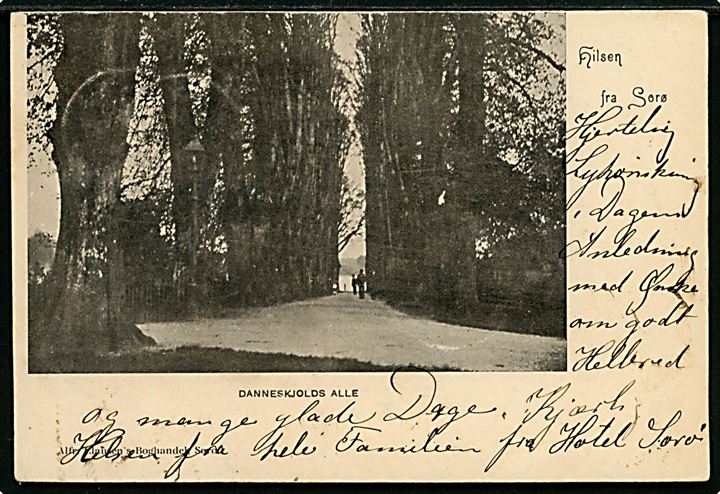 Hilsen
fra Sorø
Hjertelig
Lykønskning
i Dagens
Anledning
med Ønske
om godt
Helbred
DANNESKJOLDS ALLE
og mange glade Dage. Kjærlig
Hilsen fra hele Familien fra Hotel Sorø
Alfr. Clausen's Boghandel, Sorø.